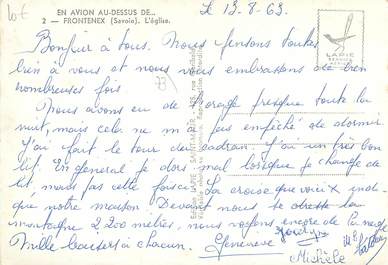 Lot
EN AVION AU-DESSUS DE...
2 — FRONTENEX (Savoie). L'église.
Le 13-8-63.
LAPIE
Bonjour à tous. Nous pensons toutes
bien à vous et nous vous embrassons de bien
nombreuses fois
Nous avons eu de l'orage presque toute la
nuit, mais cela ne m'a pas empêché de dormir
J'ai fait le tour du cadran. J'ai un très bon
lit. En général, je dors mal lorsque je change de
lit, mais pas cette fois-ci. La croix que voici X indi-
que notre maison. Devant nous se dresse la
montagne 2.200 mètres, nous voyons encore de la neige
Mille baisers à chacun. Geneviève
Michèle